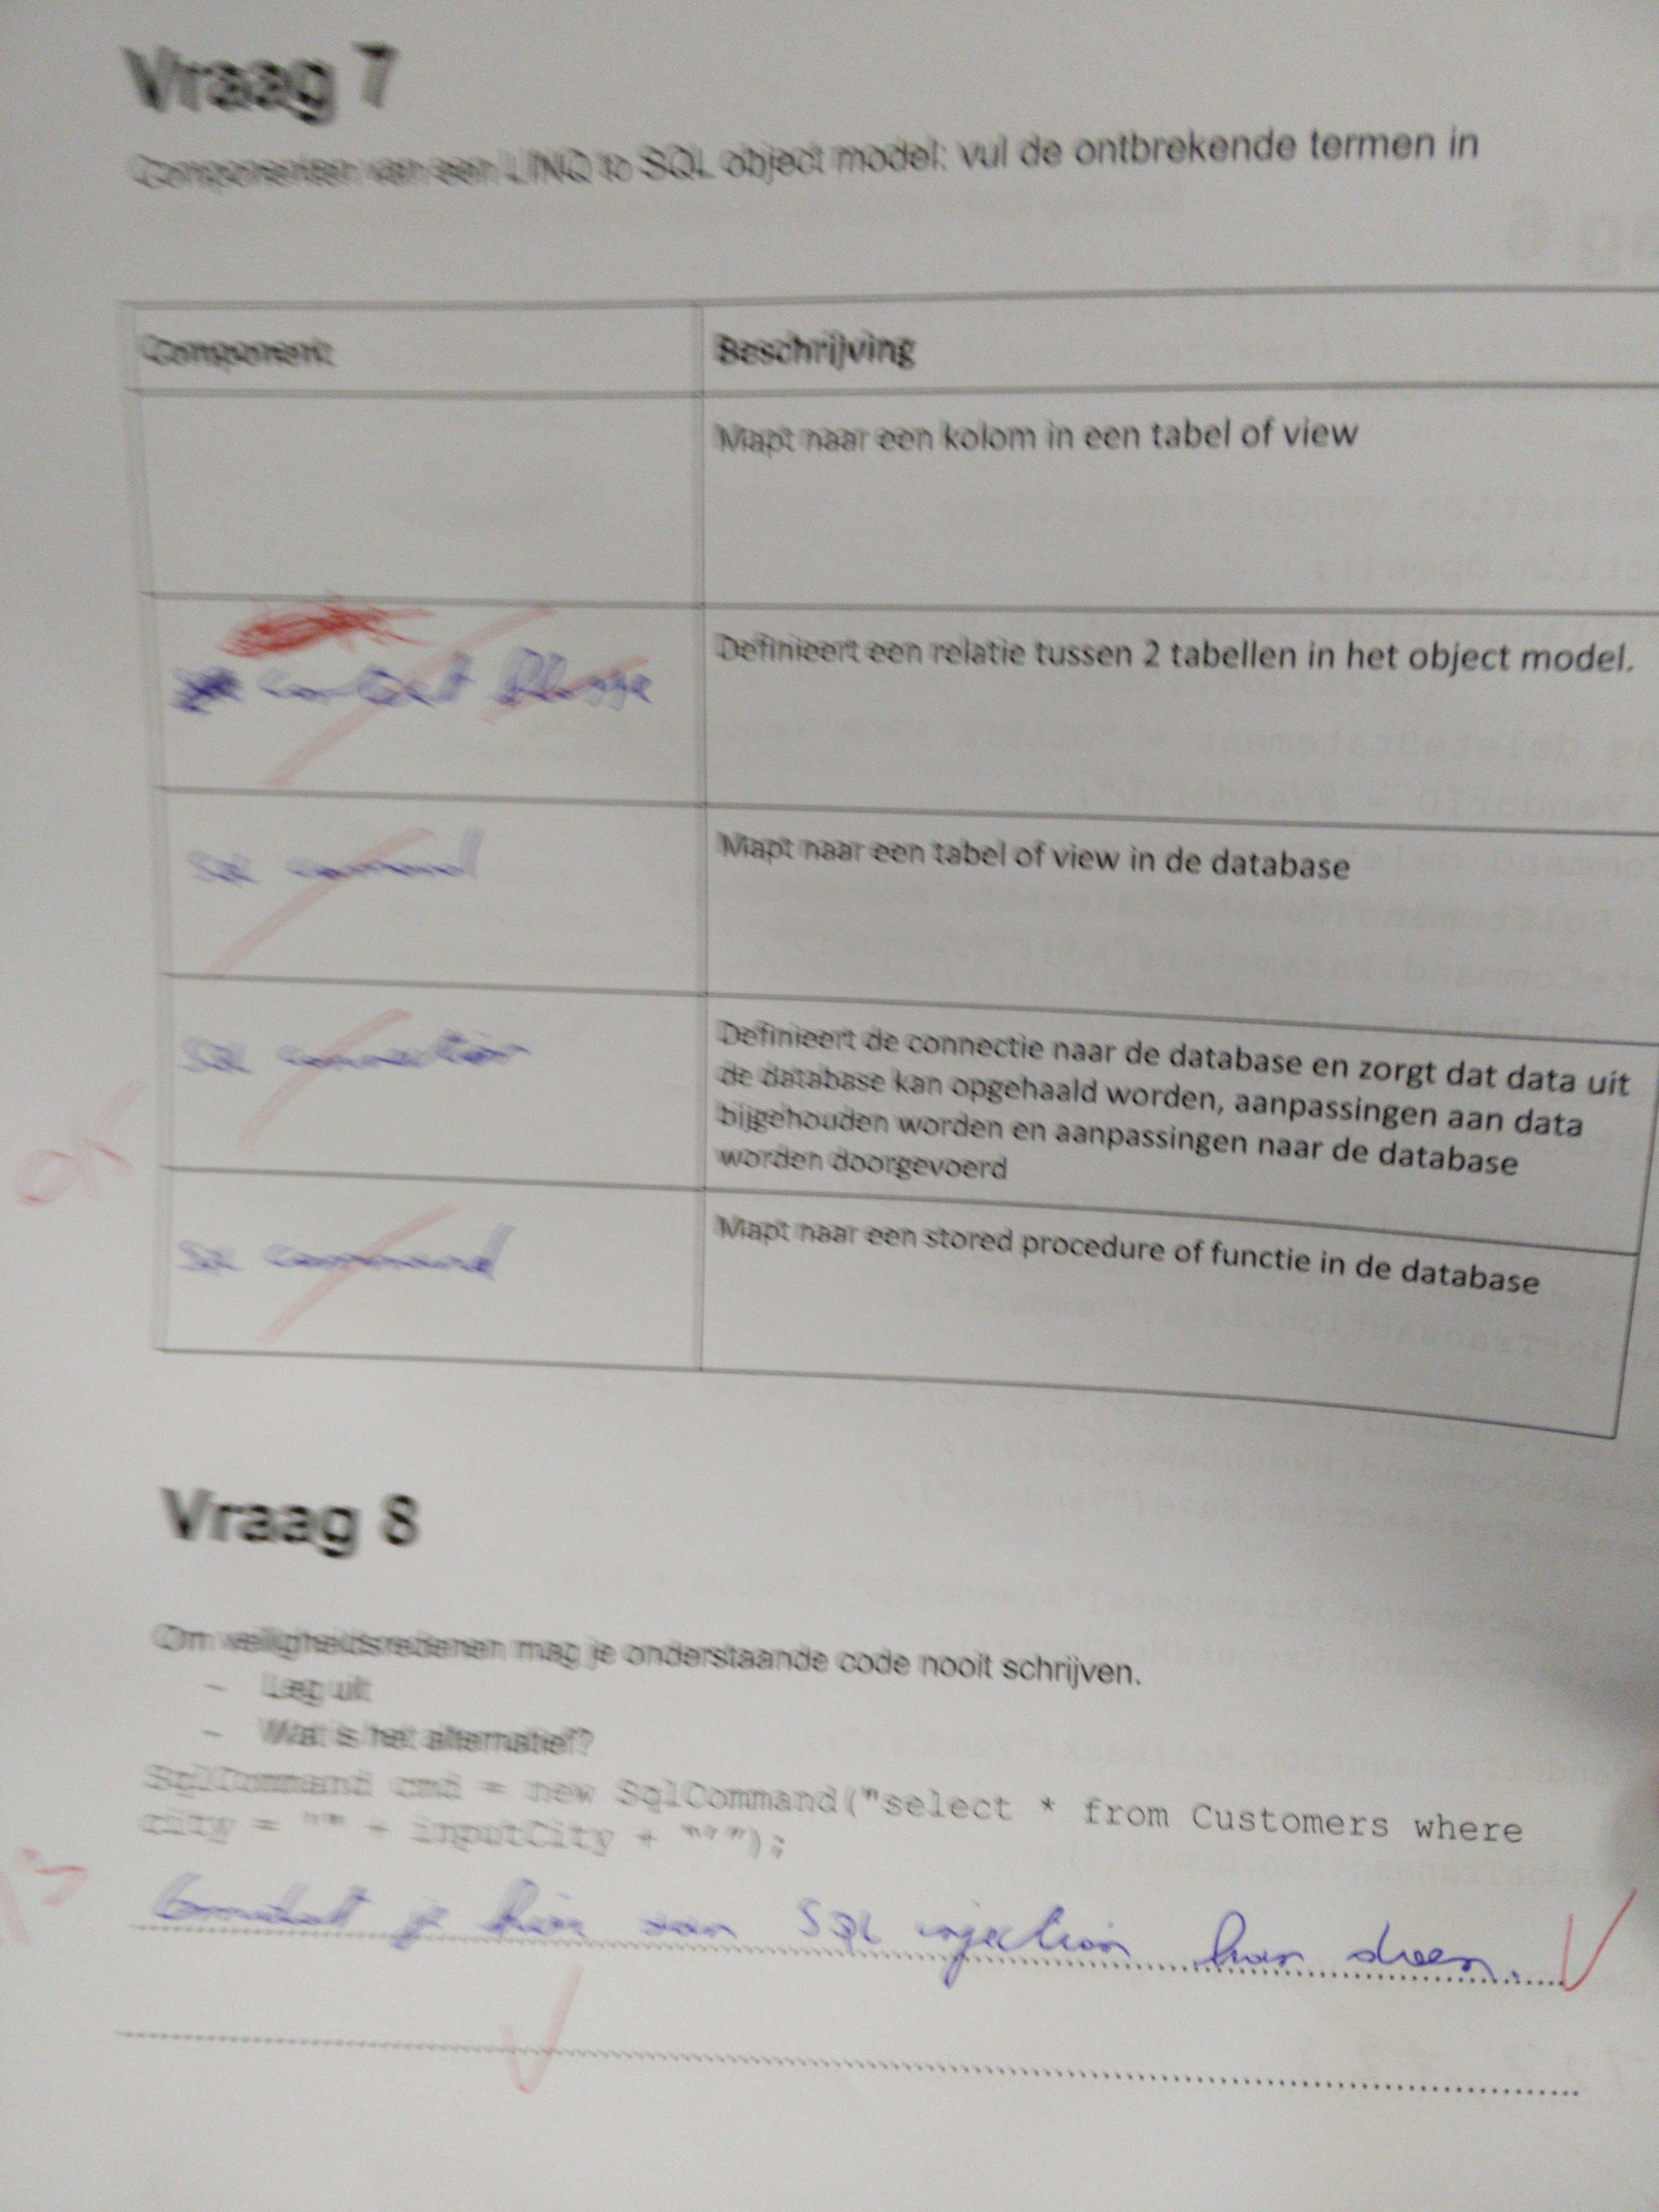 Vraag 7
Componenten van een LINQ to SQL object model: vul de ontbrekende termen in
Component
Beschrijving
Mapt naar een kolom in een tabel of view
Definieert een relatie tussen 2 tabellen in het object model.
Sql command
Mapt naar een tabel of view in de database
Sql connection
Definieert de connectie naar de database en zorgt dat data uit
de database kan opgehaald worden, aanpassingen aan data
bijgehouden worden en aanpassingen naar de database
worden doorgevoerd
Sql command
Mapt naar een stored procedure of functie in de database
Vraag 8
Om veiligheidsredenen mag je onderstaande code nooit schrijven.
- Leg uit
- Wat is het alternatief?
SqlCommand cmd = new SqlCommand("select * from Customers where
city = '" + inputCity + "'");
Omdat je hier aan Sql injection kan doen.